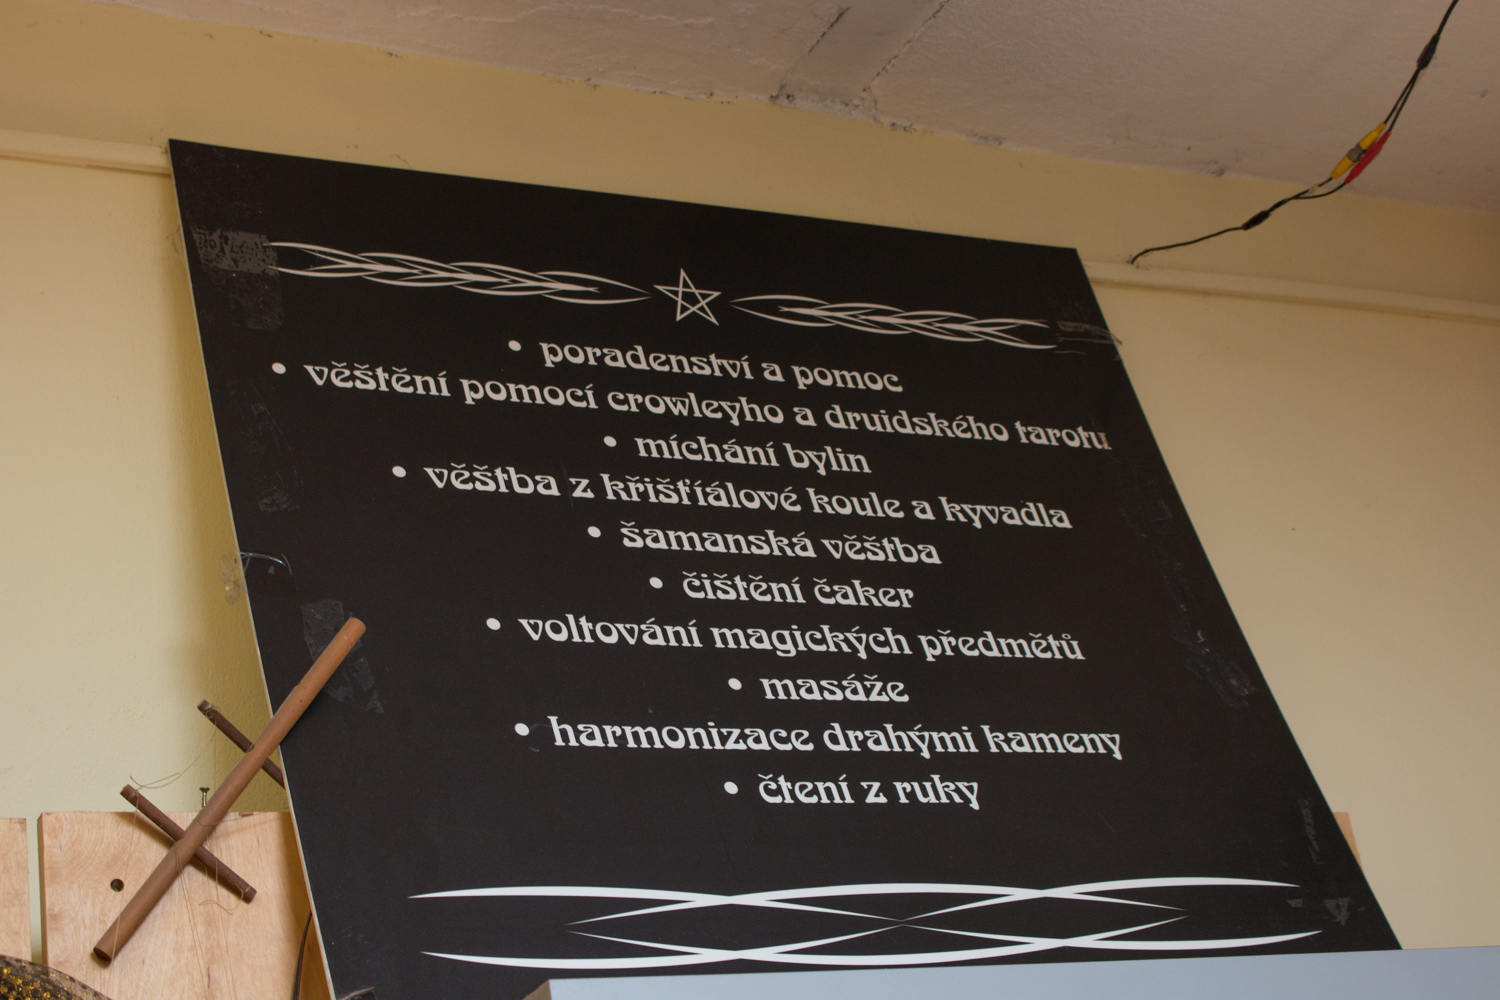 • poradenství a pomoc
• věštění pomocí crowleyho a druidského tarotu
• míchání bylin
• věštba z křišťíálové koule a kyvadla
• šamanská věštba
• čištění čaker
• voltování magických předmětů
• masáže
• harmonizace drahými kameny
• čtení z ruky